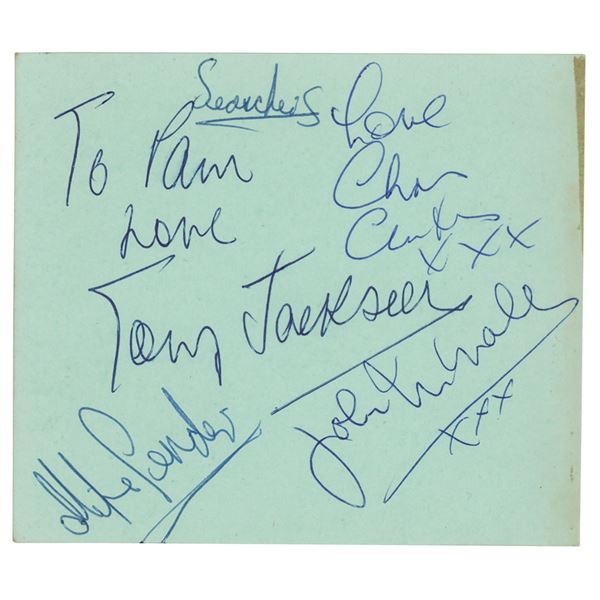 Searchers
To Pam
Love
Tony Jackson
Love
Chris
Curtis
xxx
John McNally
xxx
Mike Pender